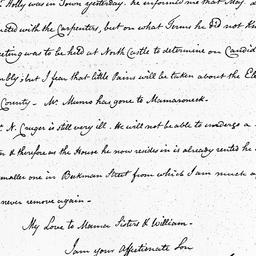 Holly was in Town yesterday. he informed me that May. d
with the Carpenters, but on what Terms he did not kn
eting was to be held at North Castle to determine on Candid
mbly; but I fear that little Pains will be taken about the Ele
County — Mr. Munro has gone to Mamaroneck.
N. Cruger is still very ill. He will not be able to undergo a
& therefore as the House he now resides in is already rented he
smaller one in Beekman Street from which I am much a
never remove again —
My Love to Mama Sisters & William —
I am your Affectionate Son